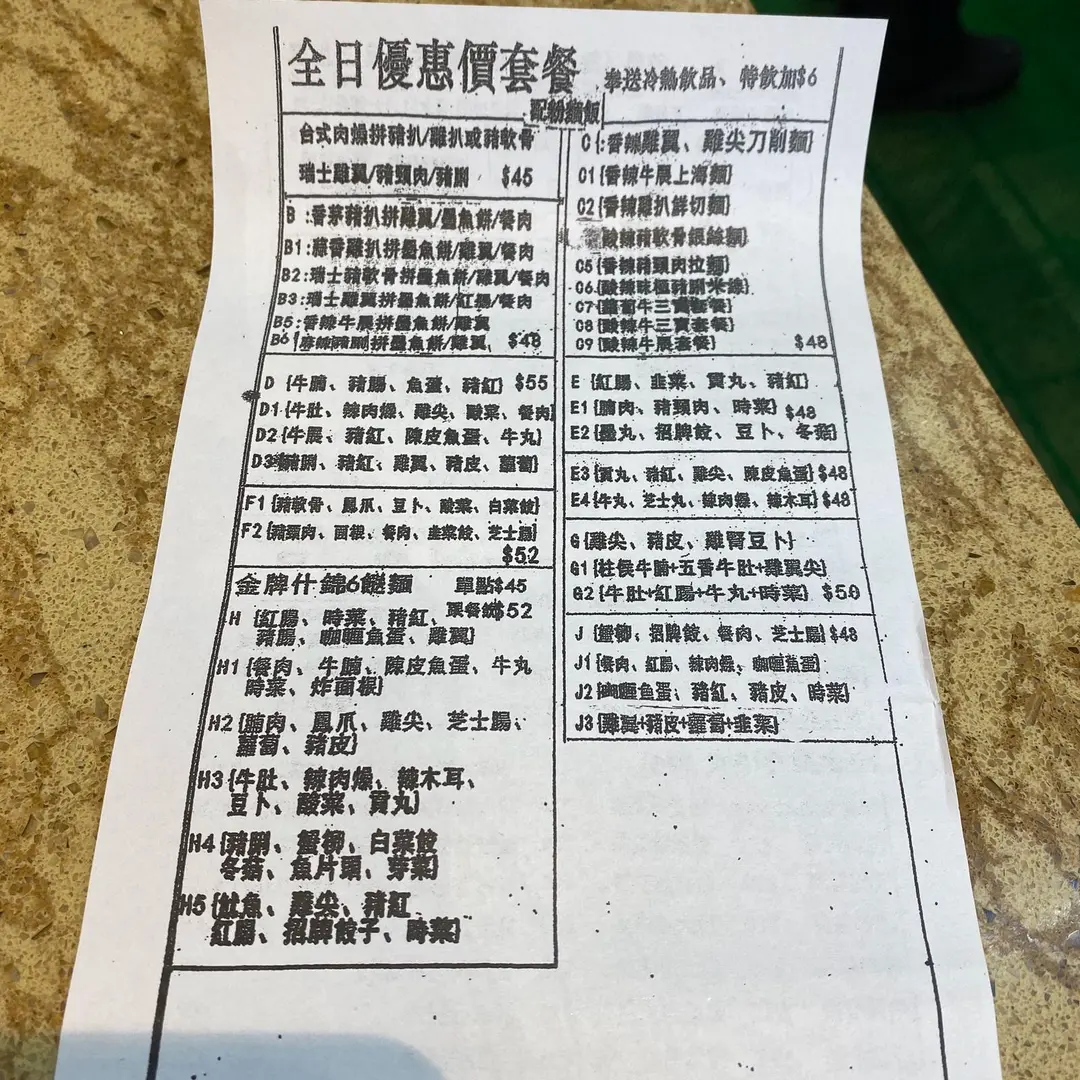 全日優惠價套餐 奉送冷熱飲品、特飲加$6
配粉麵飯
台式肉燥拼豬扒/雞扒或豬軟骨
瑞士雞翼/豬頸肉/豬脷 $45
B :香茅豬扒拼雞翼/墨魚餅/餐肉
B1:蒜香雞扒拼墨魚餅/雞翼/餐肉
B2:瑞士豬軟骨拼墨魚餅/雞翼/餐肉
B3:瑞士雞翼拼墨魚餅/紅腸/餐肉
B5:香辣牛展拼墨魚餅/雞翼
B6 麻辣豬脷拼墨魚餅/雞翼 $48
D {牛腩、豬腸、魚蛋、豬紅} $55
D1{牛肚、辣肉燥、雞尖、酸菜、餐肉
D2{牛展、豬紅、陳皮魚蛋、牛丸}
D3豬脷、豬紅、雞翼、豬皮、蘿蔔}
F1{豬軟骨、鳳爪、豆卜、酸菜、白菜餃}
F2{豬頸肉、面根、餐肉、韭菜餃、芝士腸}
$52
金牌什錦6餸麵 單點$45
跟餐飲$52
H {紅腸、時菜、豬紅、
豬腸、咖喱魚蛋、雞翼}
H1{餐肉、牛腩、陳皮魚蛋、牛丸
時菜、炸面根}
H2{腩肉、鳳爪、雞尖、芝士腸、
蘿蔔、豬皮}
H3{牛肚、辣肉燥、辣木耳、
豆卜、酸菜、貢丸}
H4{豬脷、蟹柳、白菜餃
冬菇、魚片頭、芽菜}
H5{魷魚、雞尖、豬紅
紅腸、招牌餃子、時菜}
C{:香辣雞翼、雞尖刀削麵}
C1{香辣牛展上海麵}
C2{香辣雞扒鮮切麵}
酸辣豬軟骨銀絲麵}
C5{香辣豬頸肉拉麵}
C6{酸辣味極豬脷米線}
C7{蘿蔔牛三寶套餐}
C8{酸辣牛三寶套餐}
C9{酸辣牛展套餐} $48
E {紅腸、韭菜、貢丸、豬紅}
E1{腩肉、豬頸肉、時菜} $48
E2{墨丸、招牌餃、豆卜、冬菇}
E3{貢丸、豬紅、雞尖、陳皮魚蛋}$48
E4{牛丸、芝士丸、辣肉燥、辣木耳}$48
G{雞尖、豬皮、雞腎豆卜}
G1{柱侯牛腩+五香牛肚+雞翼尖}
G2{牛肚+紅腸+牛丸+時菜} $50
J {蟹柳、招牌餃、餐肉、芝士腸}$48
J1{餐肉、紅腸、辣肉燥、咖喱魚蛋}
J2{咖喱魚蛋、豬紅、豬皮、時菜}
J3{雞翼+豬皮+蘿蔔+韭菜}